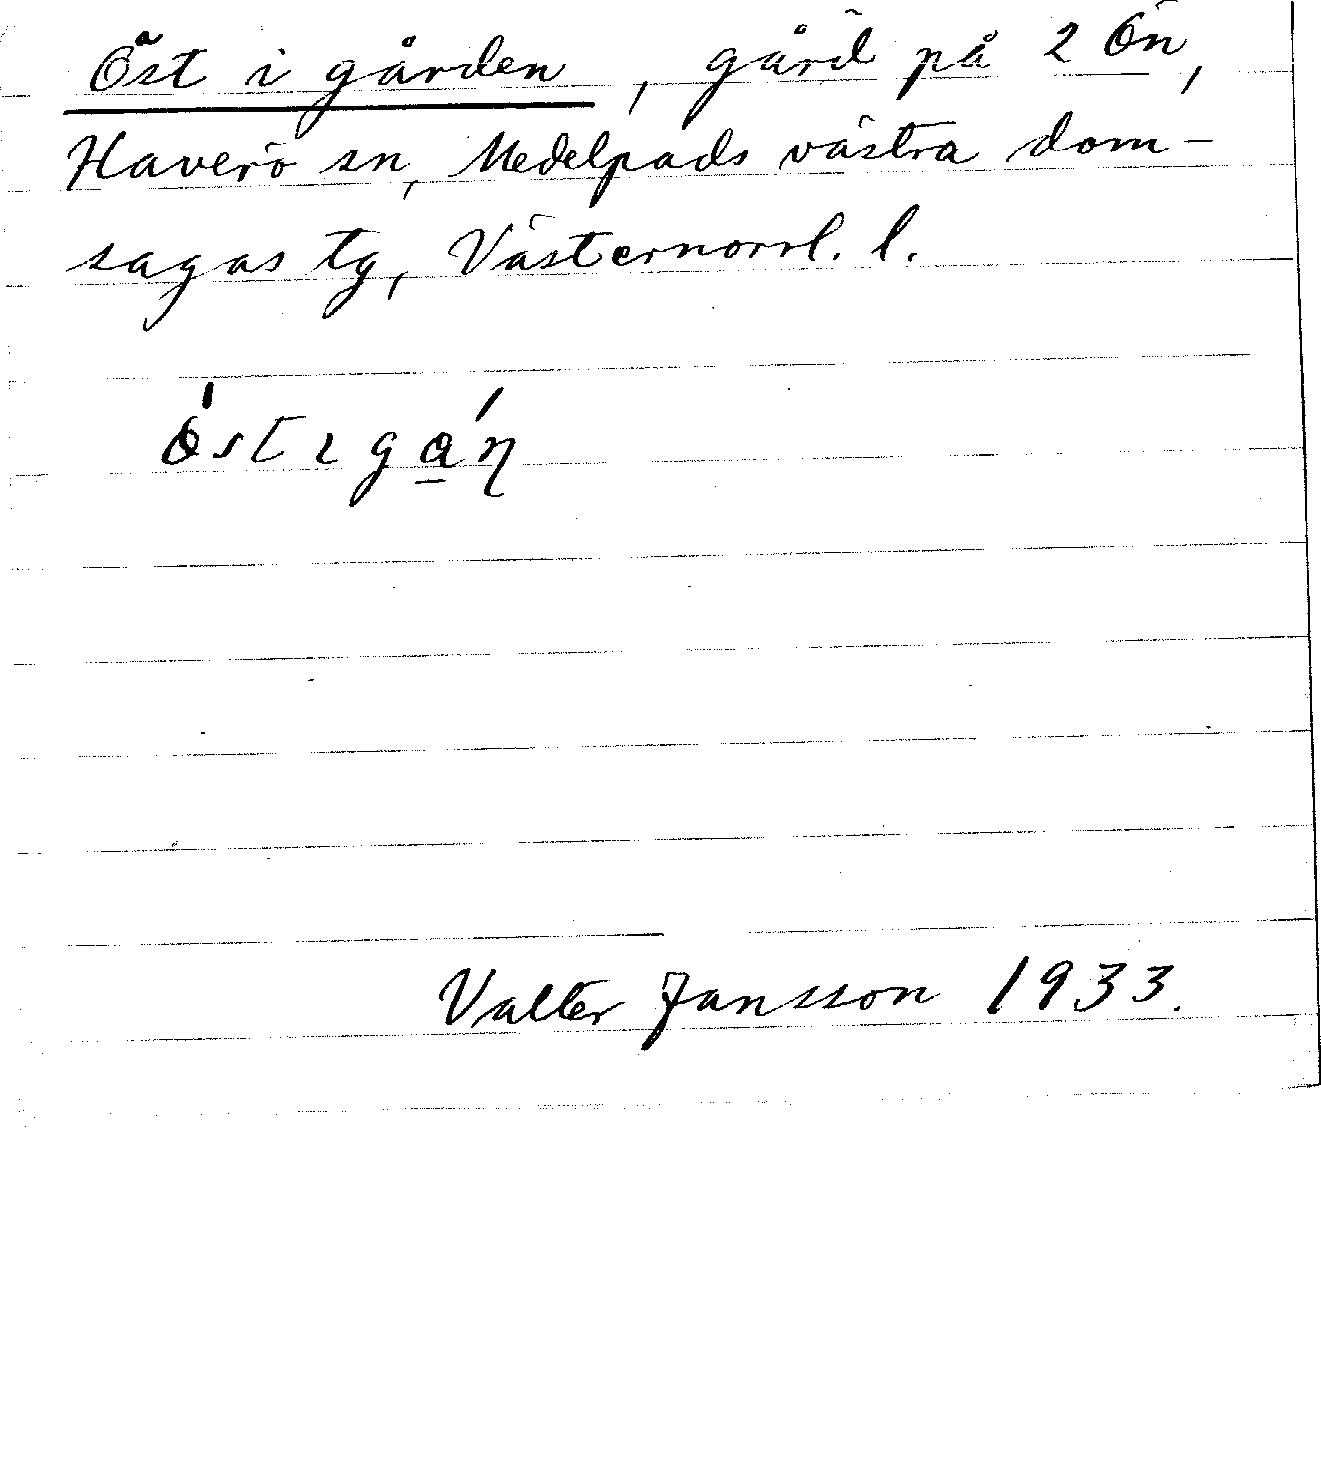 Öst i gården, gård på 2 Ön,
Haverö sn, Medelpads västra dom-
sagas tg, Västernorrl. l.
Valter Jansson 1933.